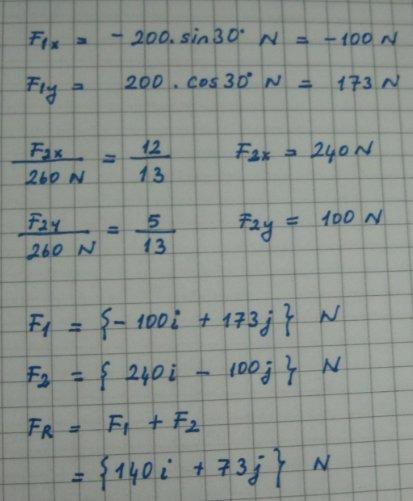 F1x = - 200.sin30° N = -100 N
F1y = 200 . cos30° N = 173 N
F2x / 260 N = 12 / 13 F2x = 240 N
F2y / 260 N = 5 / 13 F2y = 100 N
F1 = {- 100i + 173j} N
F2 = { 240i - 100j } N
FR = F1 + F2
= {140i + 73j} N